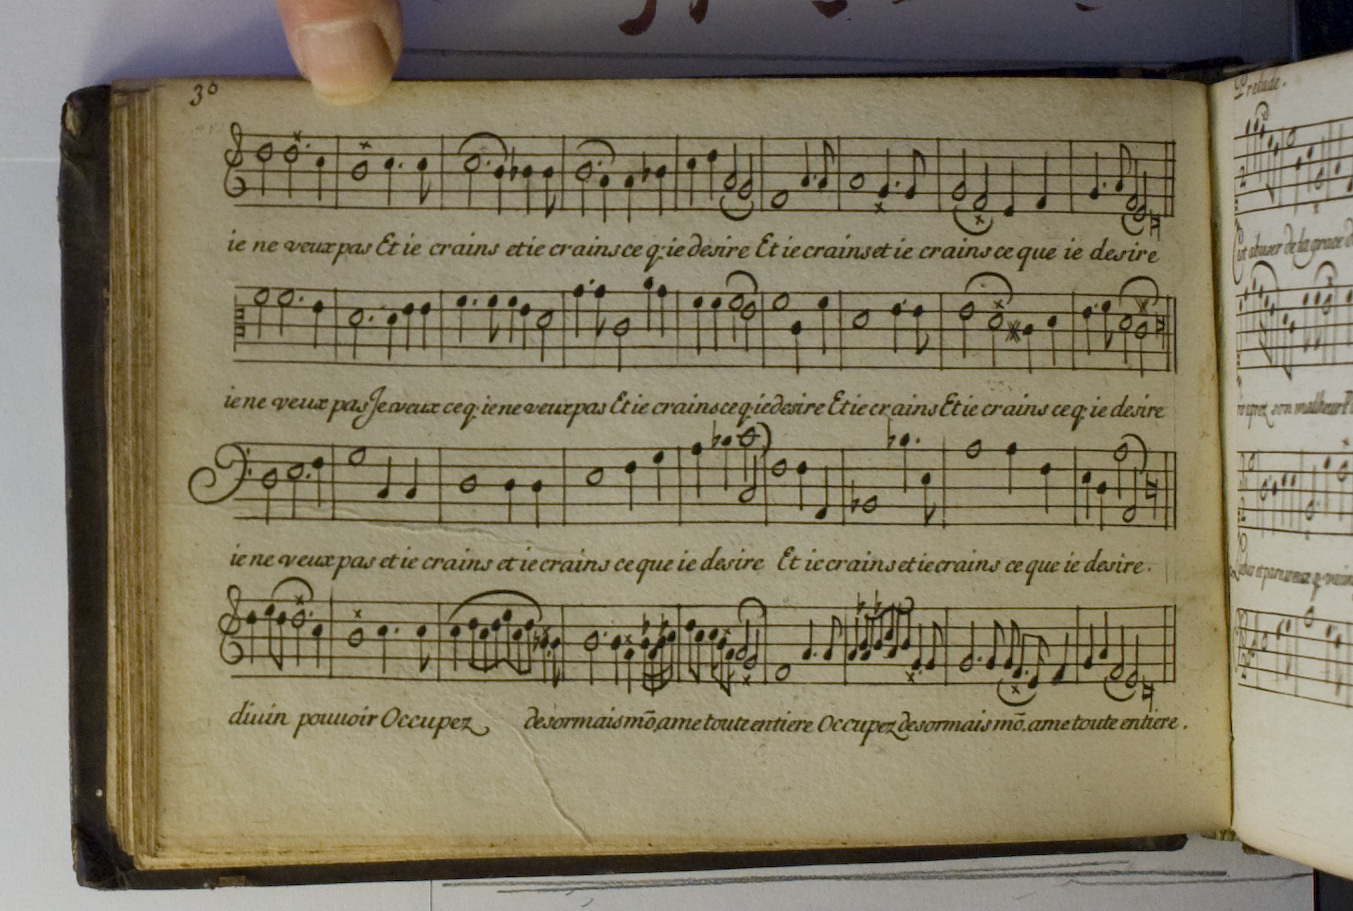 30
ie ne veux pas Et ie crains et ie crains ce q; ie desire Et ie crains et ie crains ce que ie desire
ie ne veux pas Je veux ce q; ie ne veux pas Et ie crains ce q; ie desire Et ie crains Et ie crains ce q; ie desire
ie ne veux pas et ie crains et ie crains ce que ie desire Et ie crains et ie crains ce que ie desire.
diuin pouuoir Occupez desormais mō, ame toute entiere Occupez desormais mō, ame toute entiere.
Prelude.
abuser de la grace
son malheur